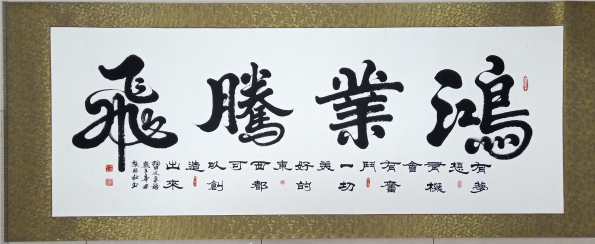 鴻業騰飛
有夢想有機會有奮鬥一切美好的東西都可以創造出來